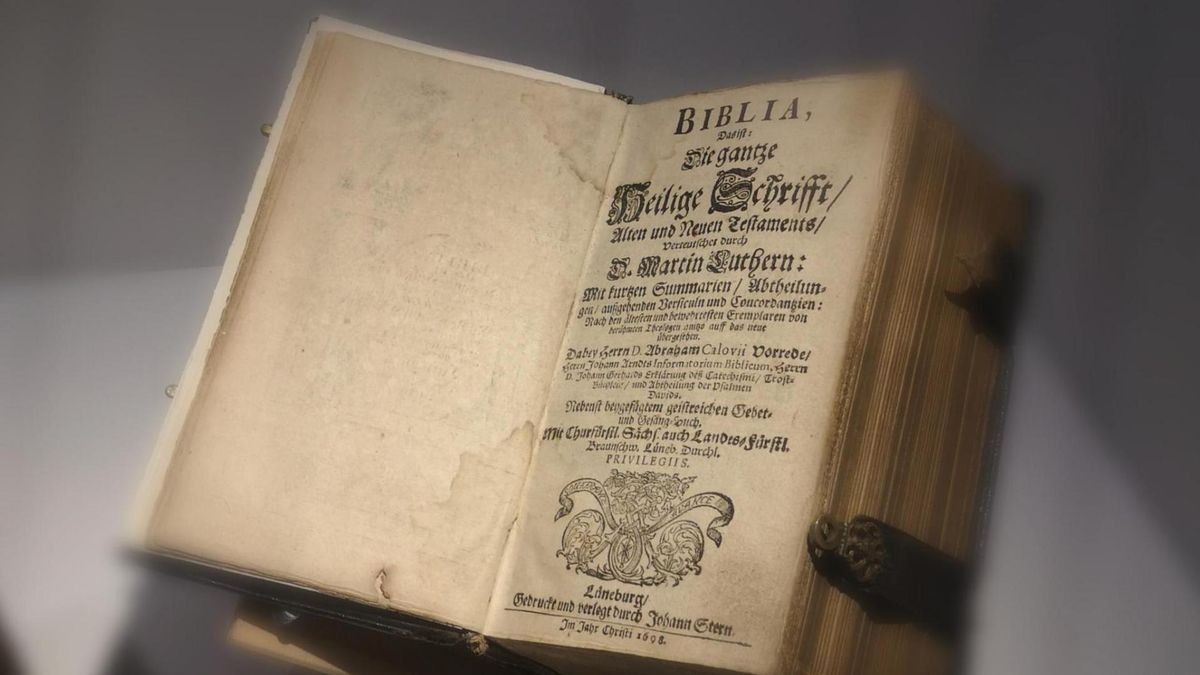 BIBLIA,
Das ist:
Die gantze
Heilige Schrifft/
Alten und Neuen Testaments/
Verteutschet durch
D. Martin Luthern:
Mit kurtzen Summarien/ Abtheilun-
gen/ außgehenden Versiculn und Concordantzien:
Nach den ältesten und bewehrtesten Exemplaren von
berühmten Theologen anitzo auff das neue
übersehen.
Dabey Herrn D. Abraham Calovii Vorrede/
Herrn Johann Arndts Informatorium Biblicum, Herrn
D. Johann Gerhards Erklärung deß Catechismi/ Trost-
und Abtheilung der Psalmen
Davids.
Nebenst beygefügtem geistreichen Gebet-
und Gesang-Buch.
Mit Churfürstl. Sächs. auch Landes-Fürstl.
Braunschw. Lüneb. Durchl.
PRIVILEGIIS.
Lüneburg/
Gedruckt und verlegt durch Johann Stern
Im Jahr Christi 1698.